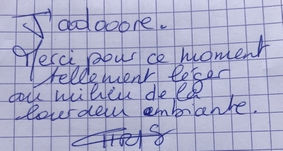 J'aadooore.
Merci pour ce moment
tellement léger
au milieu de la
lourdeur ambiante.